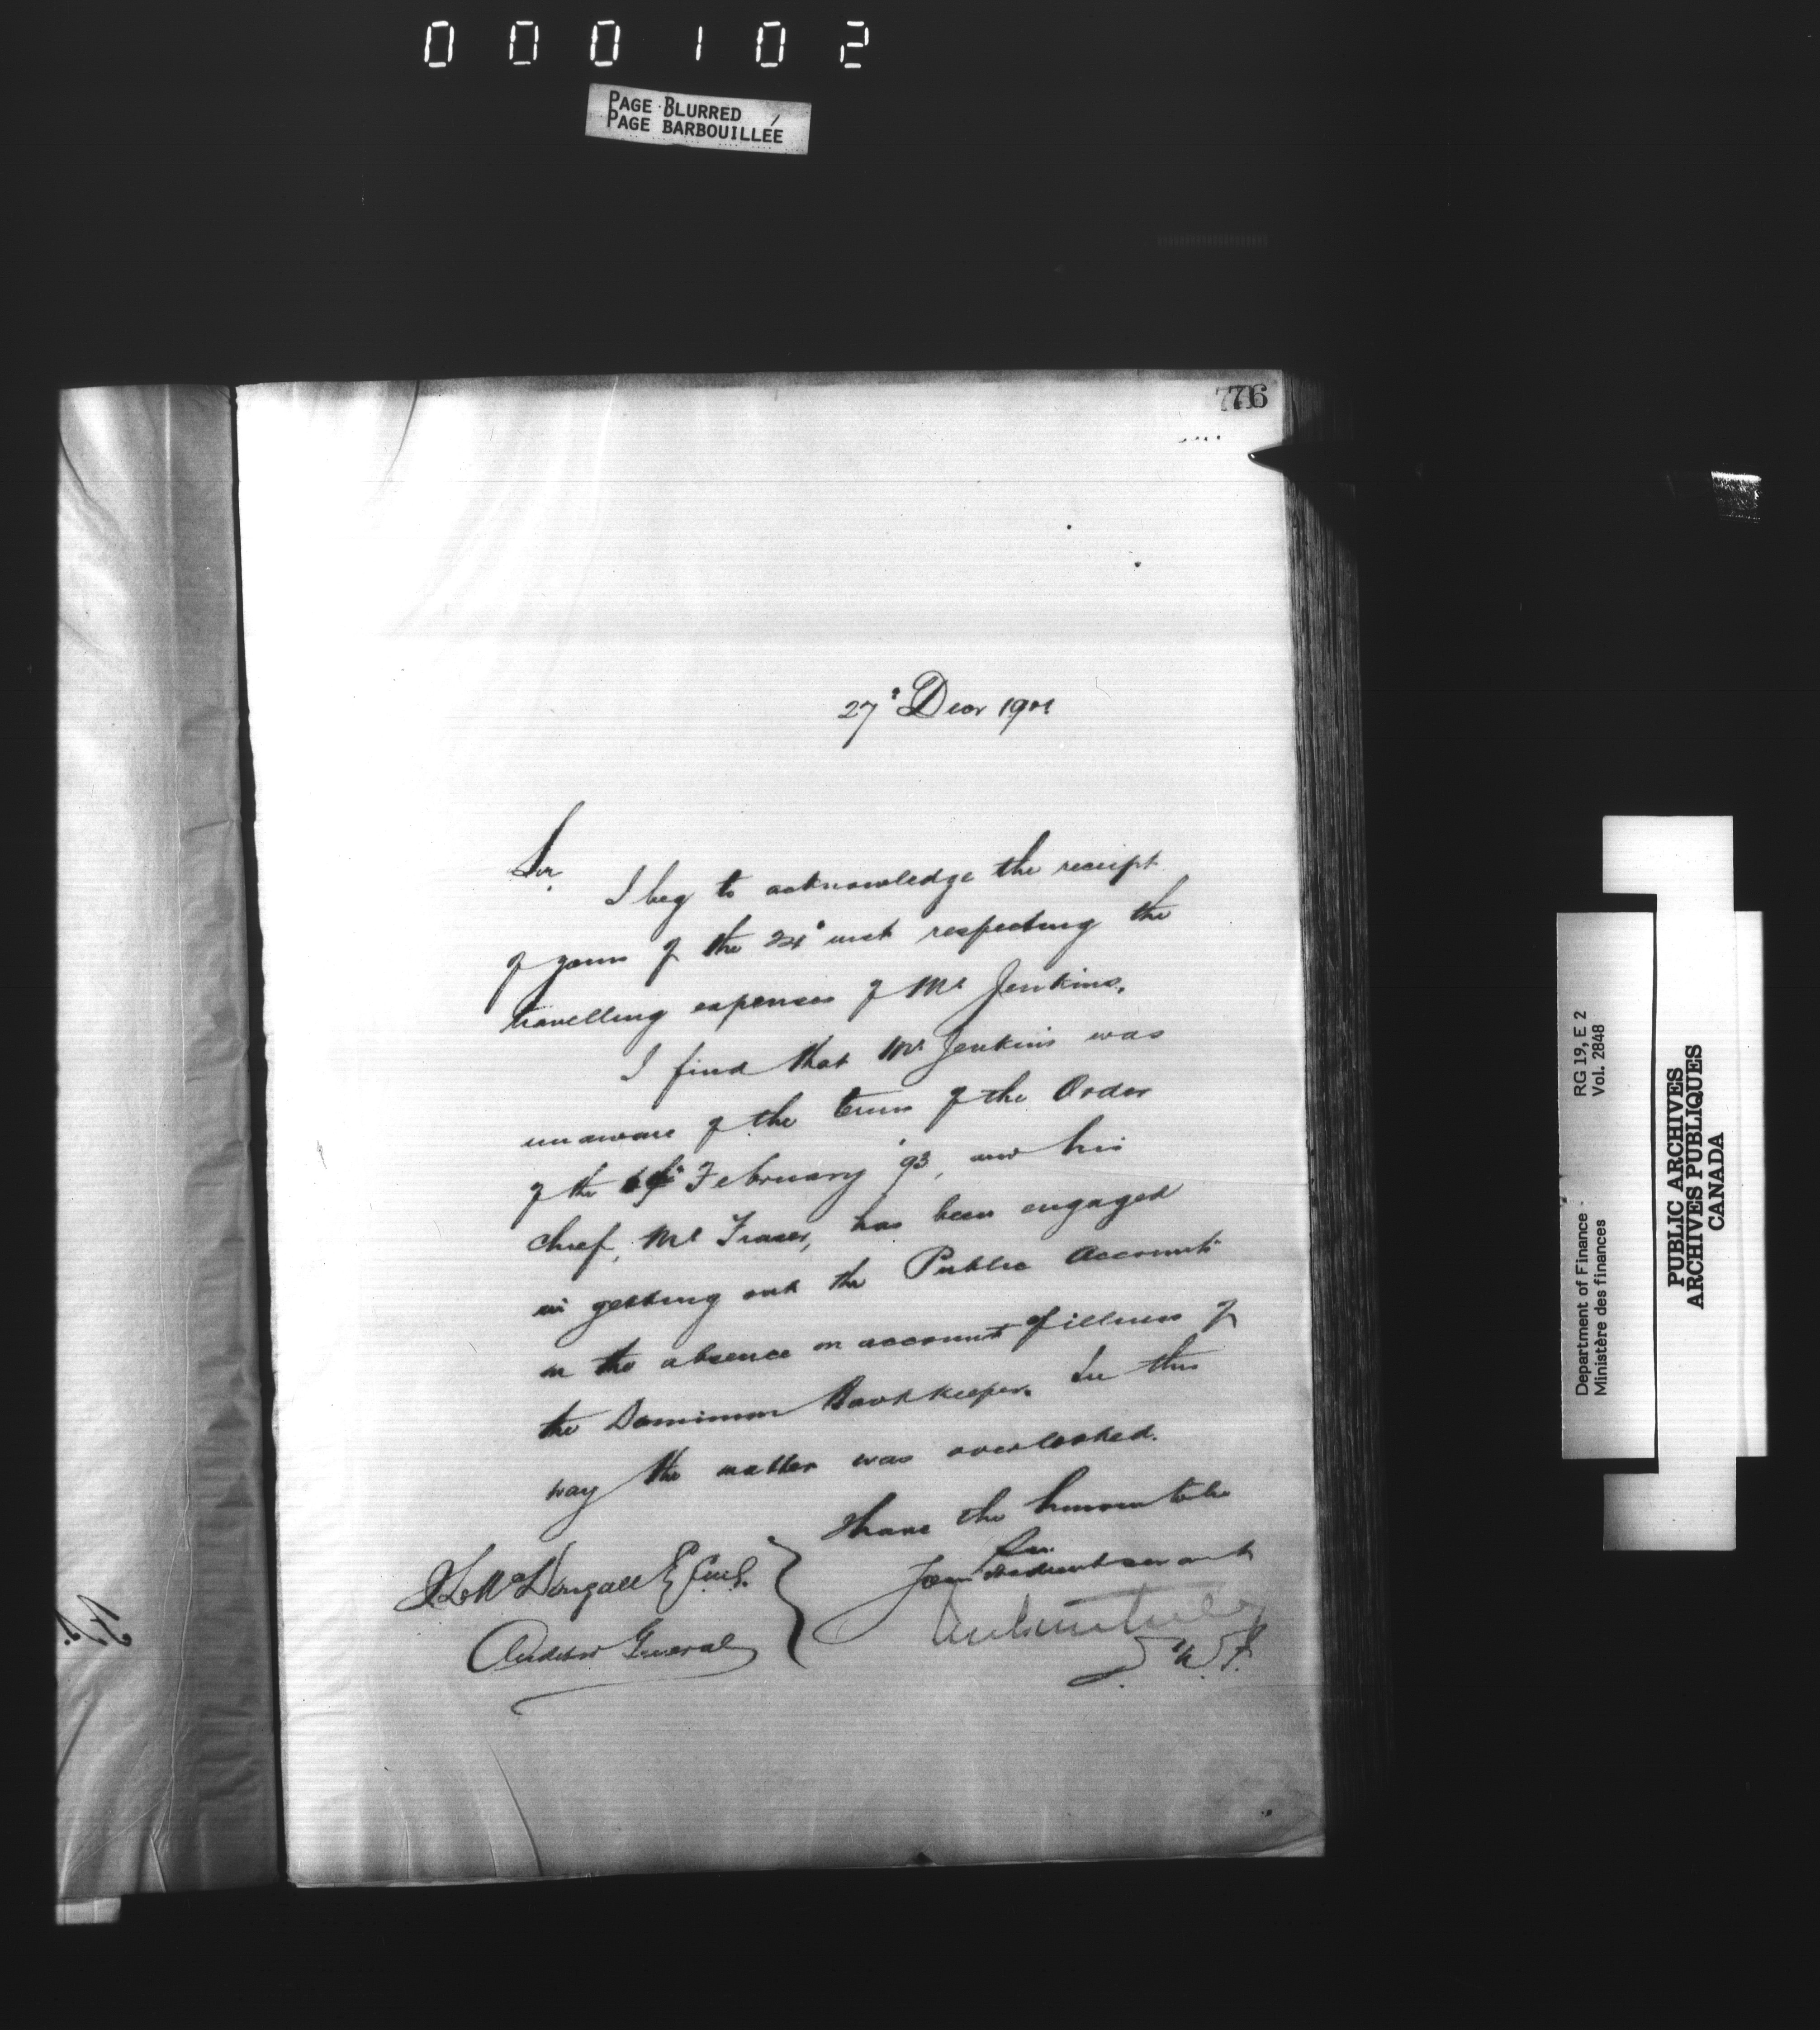 000102
PAGE BLURRED
PAGE BARBOUILLÉE
76
27' Decr 1901
Sir,
I beg to acknowledge the receipt
of yours of the 24' inst respecting the
travelling expenses of Mr Jenkins.
I find that Mr Jenkins was
unaware of the terms of the Order
of the February '93, and his
chief, Mr Fraser, has been engaged
in getting out the Public Accounts
in the absence on account of illness of
the Dominion Bookkeeper. In this
way the matter was overlooked.
I have the honour to be
Sir
Your obedient servant
D. M. F.
J. L. McDougall Esqre.
Auditor General
Department of Finance RG 19, E 2
Ministère des finances Vol. 2848
PUBLIC ARCHIVES
ARCHIVES PUBLIQUES
CANADA